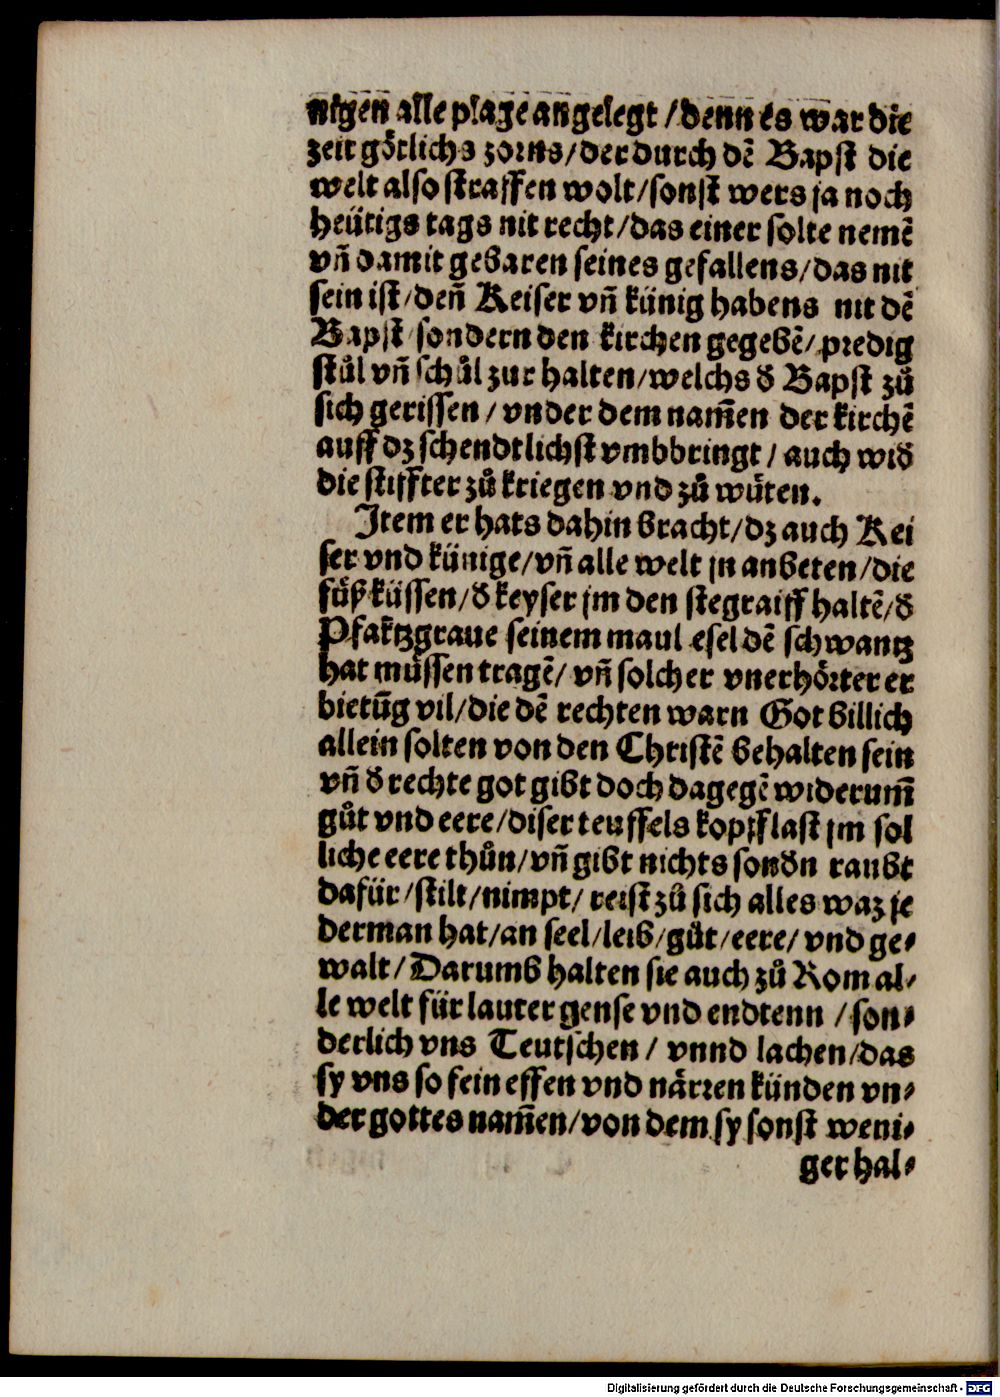 nigen alle plage angelegt / denn es war die
zeit gȯtlichs zorns / der durch dē Bapst die
welt also straffen wolt / sonst wers ja noch
heütigs tags nit recht / das einer solte nemē
vn̄ damit gebaren seines gefallens / das nit
sein ist / den̄ Keiser vn̄ künig habens nit dē
Bapst / sondern den kirchen gegebē / predig
stůl vn̄ schůl zur halten / welchs đ Bapst zů
sich gerissen / vnder dem nam̄en der kirchē
auff dz schendtlichst vmbbringt / auch wiđ
die stiffter zů kriegen vnd zů wüten.
Item er hats dahin bracht / dz auch Kei
ser vnd künige / vn̄ alle welt jn anbeten / die
füß küssen / đ keyser jm den stegraiff haltē / đ
Pfaltzgraue seinem maul esel dē schwantz
hat müssen tragē / vn̄ solcher vnerhörter er
bietūg vil / die dē rechten warn Got billich
allein solten von den Christē behalten sein
vn̄ đ rechte got gibt doch dagegē widerum̄
gůt vnd eere / diser teuffels kopff last jm sol
liche eere thůn / vn̄ gibt nichts sonđn raubt
dafür / stilt / nimpt / reist zů sich alles waz je
derman hat / an seel / leib / gůt / eere / vnd ge⸗
walt / Darumb halten sie auch zů Rom al⸗
le welt für lauter gense vnd endtenn / son⸗
derlich vns Teutschen / vnnd lachen / das
sy vns so fein effen vnd närren künden vn⸗
der gottes nam̄en / von dem sy sonst weni⸗
ger hal⸗
Digitalisierung gefördert durch die Deutsche Forschungsgemeinschaft - DFG